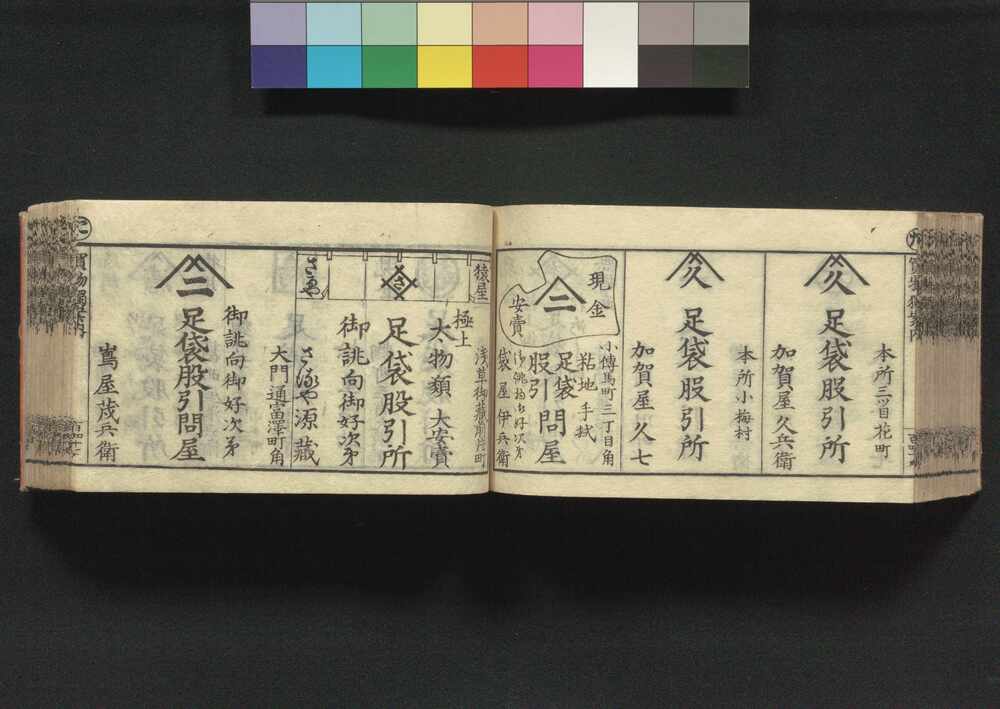 本所三ツ目花町
久
足袋股引所
加賀屋久兵衛
本所小梅村
久
足袋股引所
加賀屋久七
現金
二
安賣
小傳馬町三丁目角
粘地手拭
足袋
股引
問屋
御誂物御好次第
袋屋伊兵衛
猿屋
さ
さるや
浅草御蔵前片町
極上
太物類 大安賣
足袋股引所
御誂向御好次第
さるや源蔵
大門通富澤町角
二
御誂向御好次第
足袋股引問屋
嶌屋茂兵衛
買物獨案内